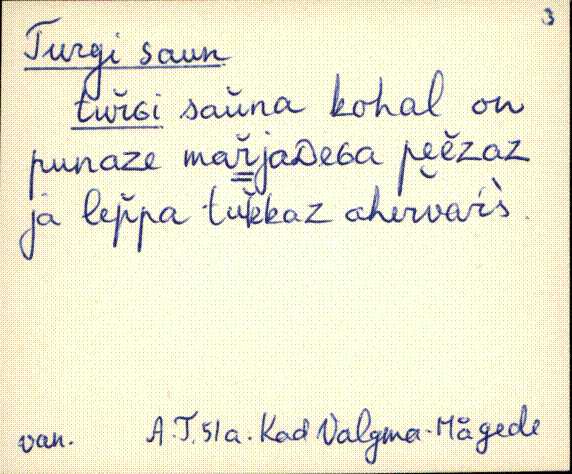 3
Turgi saun
tuř̆ɢi sau̬na kohal on
punaze mař̆jaDeɢa pěězaz
ja lep̌pa tuǩkaz ahervaŕs̀.
van. A.T. 51 a. Kad Valgma - Mägede